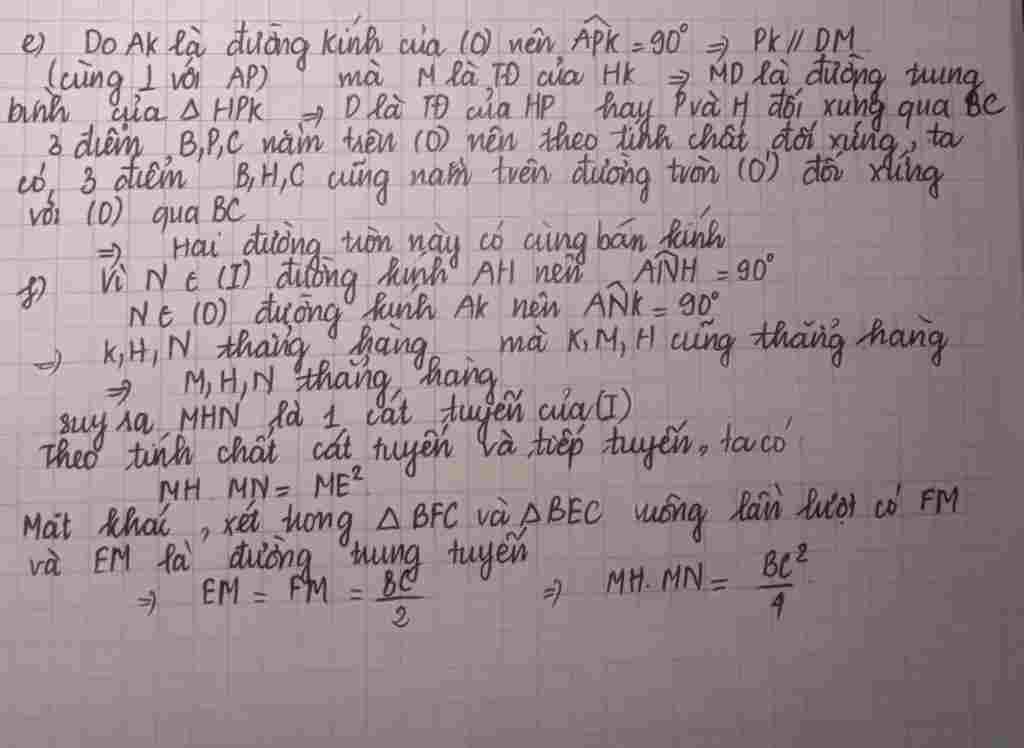 e) Do AK là đường kính của (O) nên \widehat{APK} = 90° ⇒ PK // DM
(cùng ⊥ với AP) mà M là TĐ của HK ⇒ MD là đường trung
bình của Δ HPK ⇒ D là TĐ của HP hay P và H đối xứng qua BC
3 điểm B,P,C nằm trên (O) nên theo tính chất đối xứng, ta
có, 3 điểm B,H,C cũng nằm trên đường tròn (O') đối xứng
với (O) qua BC
⇒ Hai đường tròn này có cùng bán kính
f) Vì N ∈ (I) đường kính AH nên \widehat{ANH} = 90°
N ∈ (O) đường kính AK nên \widehat{ANK} = 90°
⇒ K,H,N thẳng hàng mà K,M,H cũng thẳng hàng
⇒ M,H,N thẳng hàng
suy ra MHN là 1 cát tuyến của (I)
Theo tính chất cát tuyến và tiếp tuyến, ta có
MH. MN = ME²
Mặt khác, xét trong Δ BFC và Δ BEC vuông lần lượt có FM
và EM là đường trung tuyến
⇒ EM = FM = BC/2 ⇒ MH. MN = BC²/4